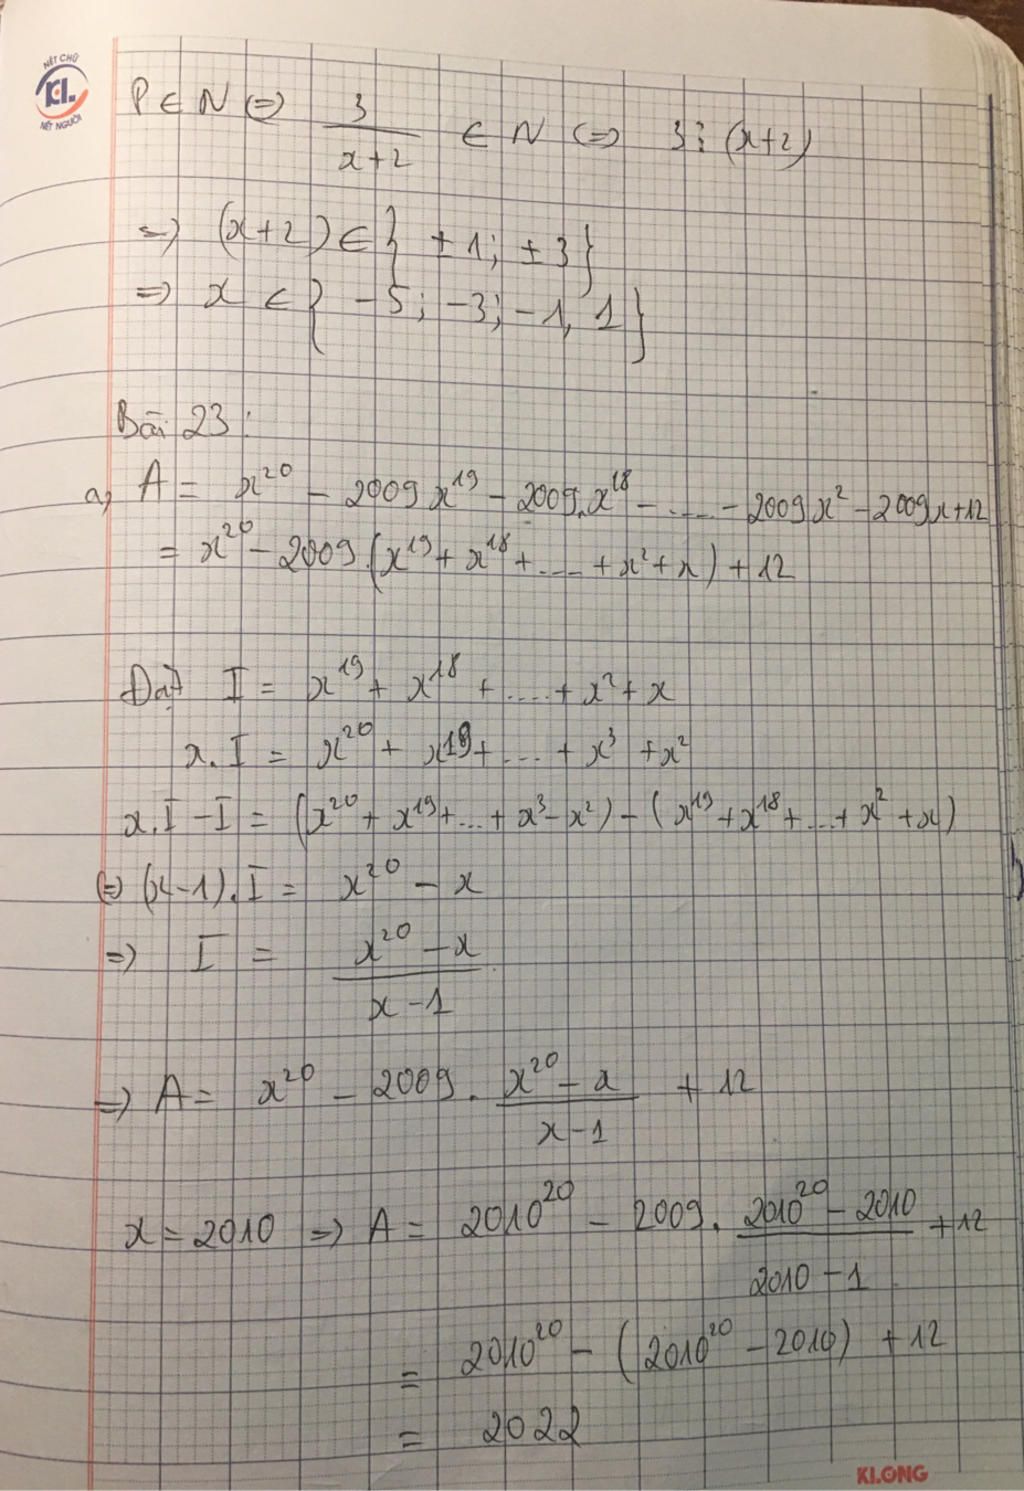 NÉT CHỮ
KL.
NẾT NGƯỜI
P ∈ N ⇔ 3/(x+2) ∈ N ⇔ 3⋮(x+2)
⇒ (x+2) ∈ { ±1; ±3}
⇒ x ∈ { -5; -3; -1, 1}
Bài 23:
a, A = x²⁰ - 2009x¹⁹ - 2009.x¹⁸ - ..... - 2009x² - 2009x+12
= x²⁰ - 2009.(x¹⁹ + x¹⁸ + .... + x² + x) + 12
Đặt I = x¹⁹ + x¹⁸ + ..... + x² + x
x.I = x²⁰ + x¹⁹ + ... + x³ + x²
x.I - I = (x²⁰ + x¹⁹ + ... + x³ - x²) - (x¹⁹ + x¹⁸ + ... + x² + x)
⇔ (x-1).I = x²⁰ - x
⇒ I = (x²⁰ - x)/(x-1)
⇒ A = x²⁰ - 2009. (x²⁰ - x)/(x-1) + 12
x = 2010 ⇒ A = 2010²⁰ - 2009. (2010²⁰ - 2010)/(2010 - 1) + 12
= 2010²⁰ - (2010²⁰ - 2010) + 12
= 2022
KLONG